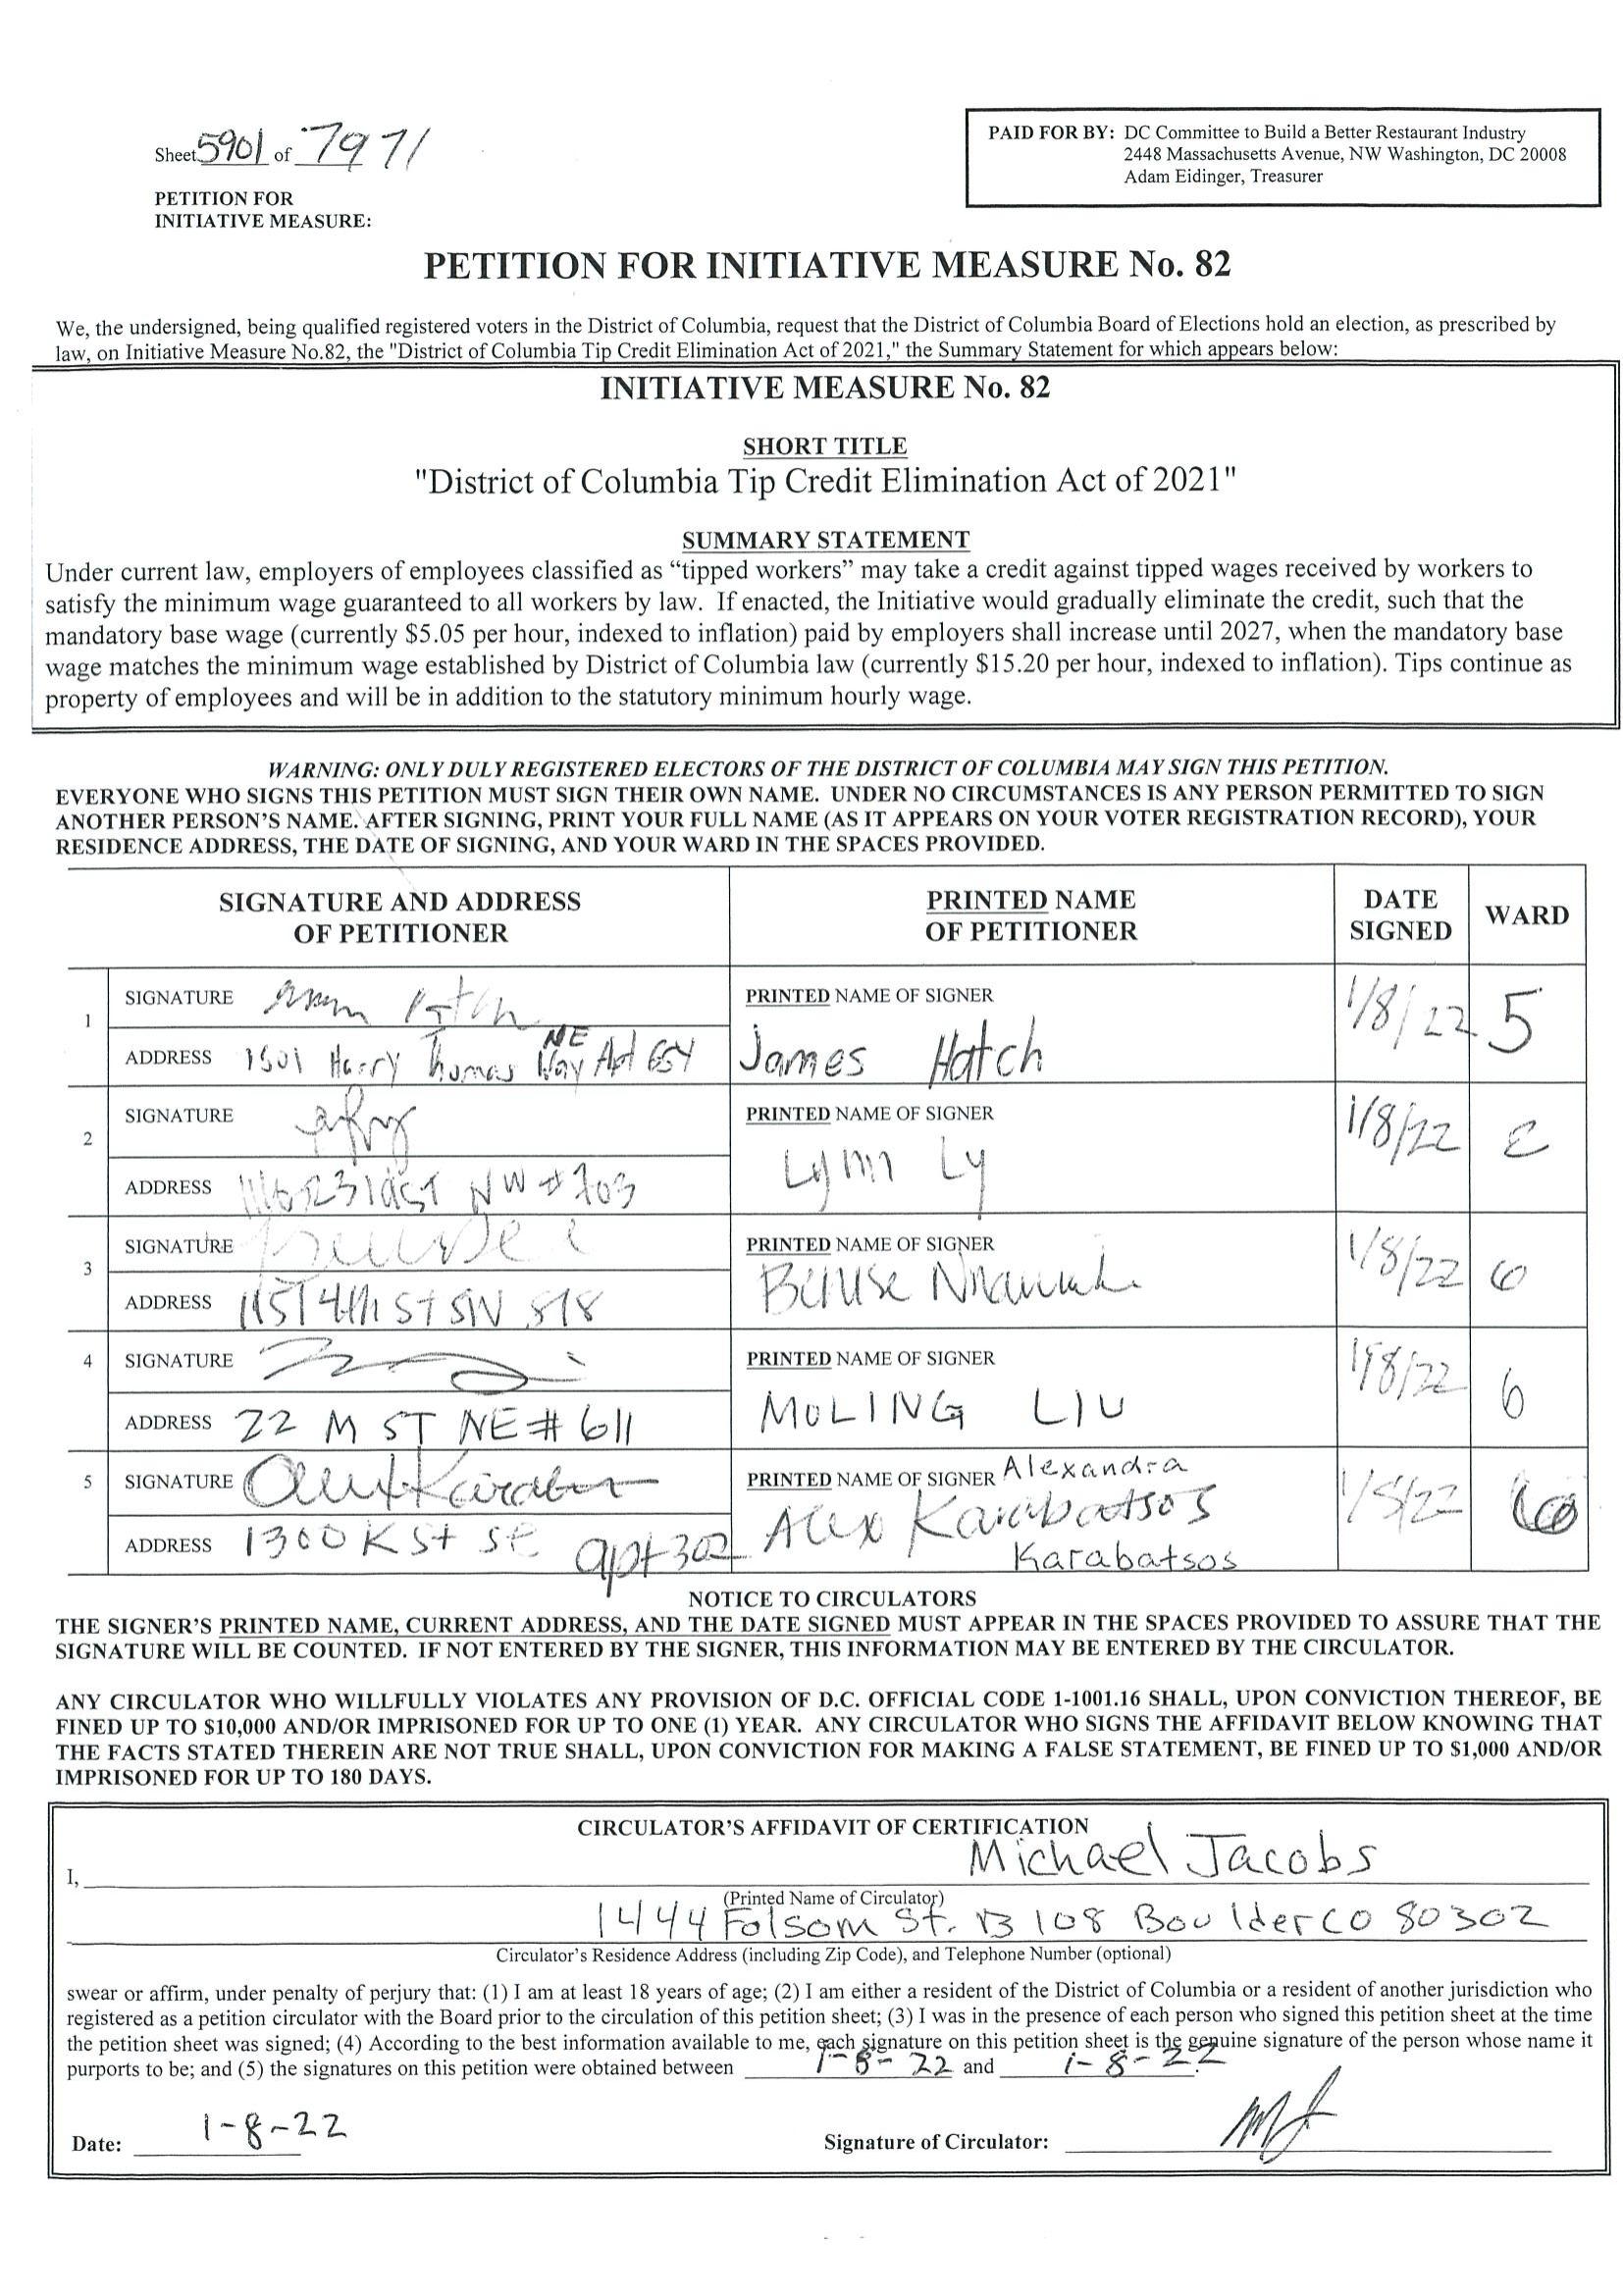 Sheet 5901 of 7971
PAID FOR BY: DC Committee to Build a Better Restaurant Industry
2448 Massachusetts Avenue, NW Washington, DC 20008
Adam Eidinger, Treasurer
PETITION FOR
INITIATIVE MEASURE:
PETITION FOR INITIATIVE MEASURE No. 82
We, the undersigned, being qualified registered voters in the District of Columbia, request that the District of Columbia Board of Elections hold an election, as prescribed by
law, on Initiative Measure No.82, the "District of Columbia Tip Credit Elimination Act of 2021," the Summary Statement for which appears below:
INITIATIVE MEASURE No. 82
SHORT TITLE
"District of Columbia Tip Credit Elimination Act of 2021"
SUMMARY STATEMENT
Under current law, employers of employees classified as “tipped workers” may take a credit against tipped wages received by workers to
satisfy the minimum wage guaranteed to all workers by law. If enacted, the Initiative would gradually eliminate the credit, such that the
mandatory base wage (currently $5.05 per hour, indexed to inflation) paid by employers shall increase until 2027, when the mandatory base
wage matches the minimum wage established by District of Columbia law (currently $15.20 per hour, indexed to inflation). Tips continue as
property of employees and will be in addition to the statutory minimum hourly wage.
WARNING: ONLY DULY REGISTERED ELECTORS OF THE DISTRICT OF COLUMBIA MAY SIGN THIS PETITION.
EVERYONE WHO SIGNS THIS PETITION MUST SIGN THEIR OWN NAME. UNDER NO CIRCUMSTANCES IS ANY PERSON PERMITTED TO SIGN
ANOTHER PERSON’S NAME. AFTER SIGNING, PRINT YOUR FULL NAME (AS IT APPEARS ON YOUR VOTER REGISTRATION RECORD), YOUR
RESIDENCE ADDRESS, THE DATE OF SIGNING, AND YOUR WARD IN THE SPACES PROVIDED.
SIGNATURE AND ADDRESS
OF PETITIONER
PRINTED NAME
OF PETITIONER
DATE
SIGNED
WARD
1
SIGNATURE
ADDRESS 1501 Harry Thomas NE Way Apt 654
PRINTED NAME OF SIGNER
James Hatch
1/8/22
5
2
SIGNATURE
ADDRESS NW #703
PRINTED NAME OF SIGNER
Lynn Ly
1/8/22
2
3
SIGNATURE
ADDRESS 1151 4th St SW 818
PRINTED NAME OF SIGNER
1/8/22
6
4
SIGNATURE
ADDRESS 22 M ST NE # 611
PRINTED NAME OF SIGNER
MOLING LIU
1/8/22
6
5
SIGNATURE
ADDRESS 1300 K St SE apt 302
PRINTED NAME OF SIGNER Alexandra
Alex Karabatsos
Karabatsos
6
NOTICE TO CIRCULATORS
THE SIGNER’S PRINTED NAME, CURRENT ADDRESS, AND THE DATE SIGNED MUST APPEAR IN THE SPACES PROVIDED TO ASSURE THAT THE
SIGNATURE WILL BE COUNTED. IF NOT ENTERED BY THE SIGNER, THIS INFORMATION MAY BE ENTERED BY THE CIRCULATOR.
ANY CIRCULATOR WHO WILLFULLY VIOLATES ANY PROVISION OF D.C. OFFICIAL CODE 1-1001.16 SHALL, UPON CONVICTION THEREOF, BE
FINED UP TO $10,000 AND/OR IMPRISONED FOR UP TO ONE (1) YEAR. ANY CIRCULATOR WHO SIGNS THE AFFIDAVIT BELOW KNOWING THAT
THE FACTS STATED THEREIN ARE NOT TRUE SHALL, UPON CONVICTION FOR MAKING A FALSE STATEMENT, BE FINED UP TO $1,000 AND/OR
IMPRISONED FOR UP TO 180 DAYS.
CIRCULATOR’S AFFIDAVIT OF CERTIFICATION
I, Michael Jacobs
(Printed Name of Circulator)
1444 Folsom St. B 108 Boulder CO 80302
Circulator’s Residence Address (including Zip Code), and Telephone Number (optional)
swear or affirm, under penalty of perjury that: (1) I am at least 18 years of age; (2) I am either a resident of the District of Columbia or a resident of another jurisdiction who
registered as a petition circulator with the Board prior to the circulation of this petition sheet; (3) I was in the presence of each person who signed this petition sheet at the time
the petition sheet was signed; (4) According to the best information available to me, each signature on this petition sheet is the genuine signature of the person whose name it
purports to be; and (5) the signatures on this petition were obtained between 1-8-22 and 1-8-22.
Date: 1-8-22
Signature of Circulator: